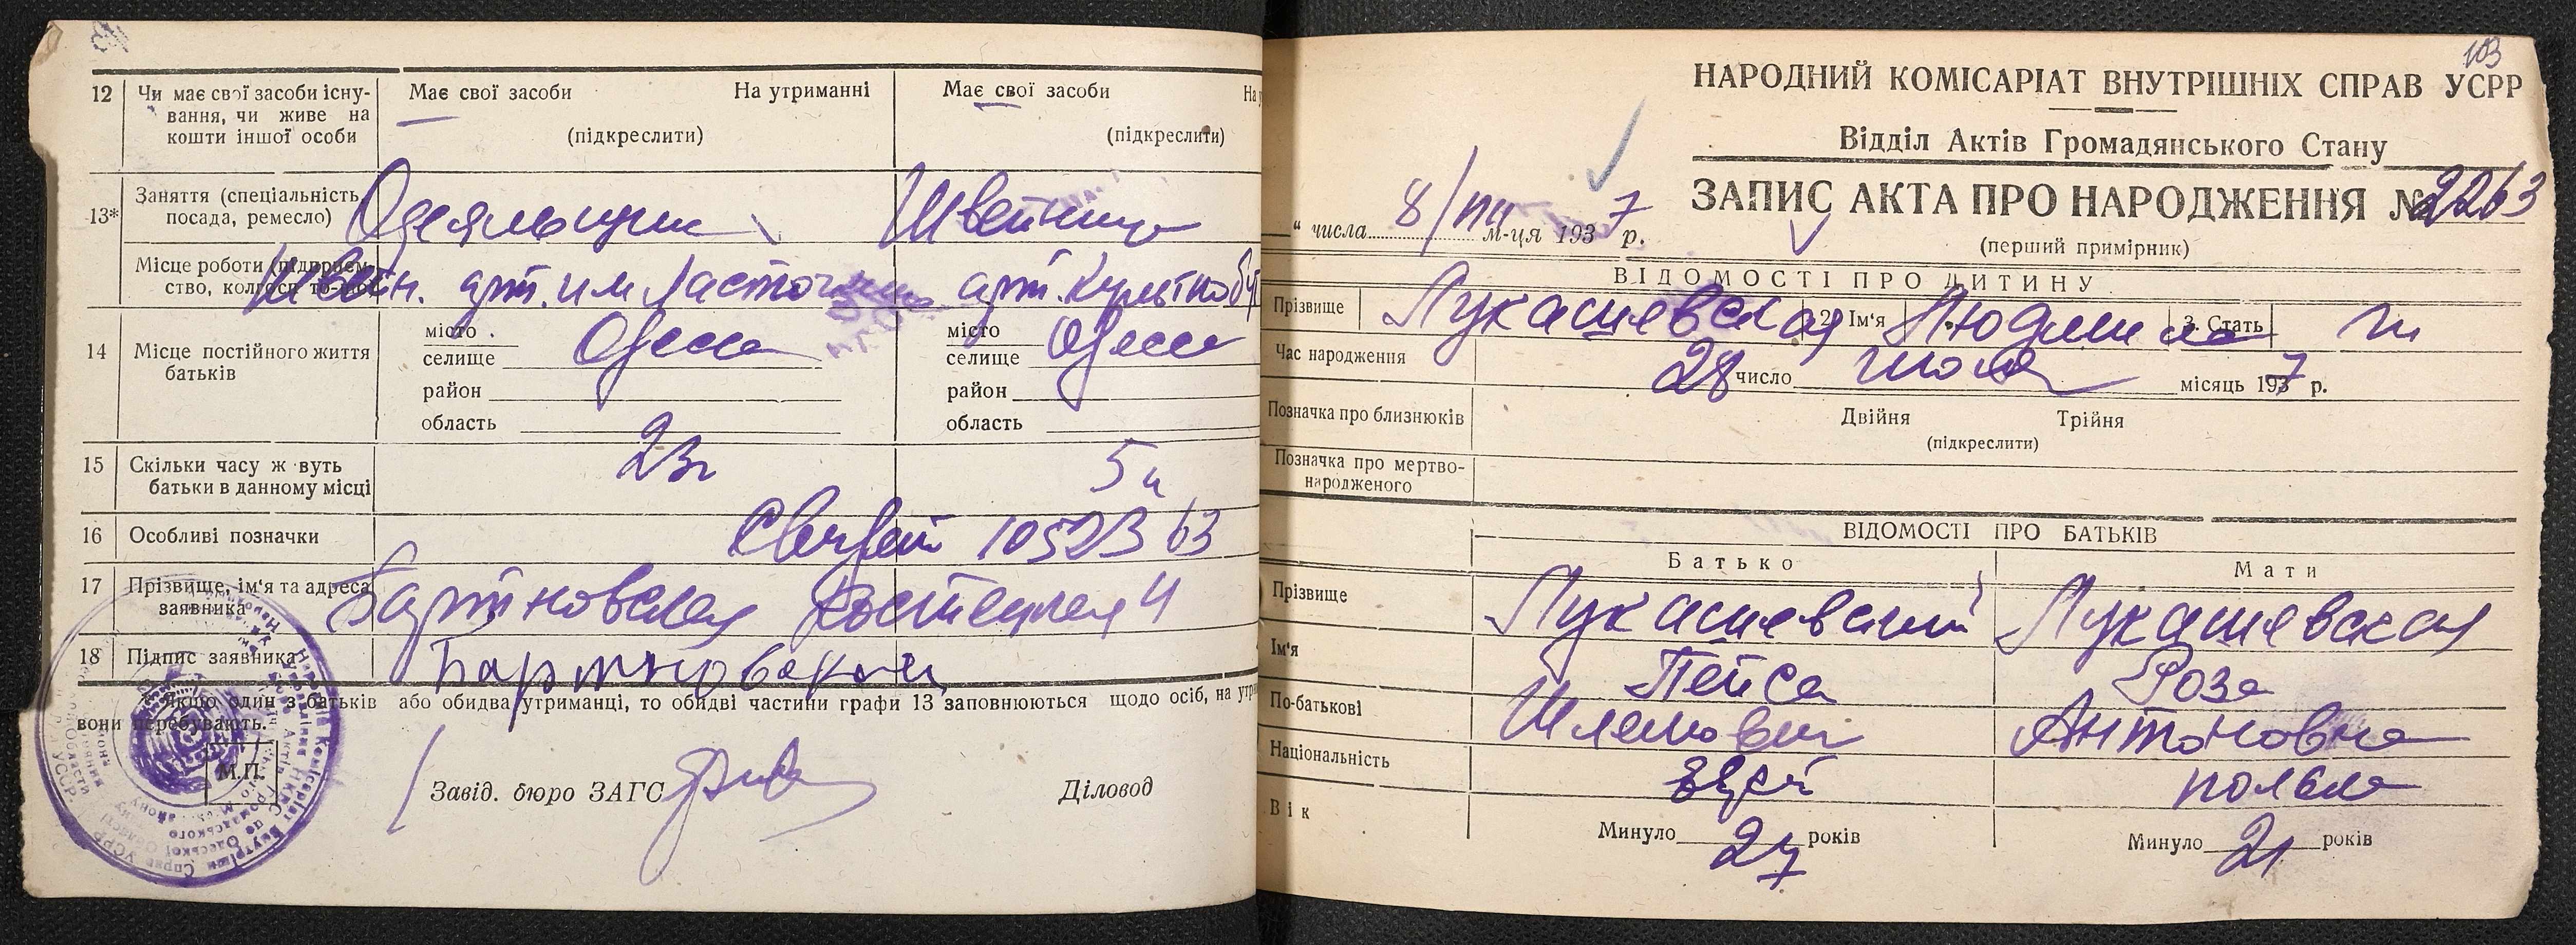 12 Чи має свої засоби існу-
вання, чи живе на
кошти іншої особи
Має свої засоби На утриманні
(підкреслити)
Має свої засоби
(підкреслити)
13* Заняття (спеціальність,
посада, ремесло)
Одеяльщик Швейница
Місце роботи (підприєм-
ство, колгосп то-що)
Швейн. арт. им Ласточкина арт. Культпобут
14 Місце постійного життя
батьків
місто
селище Одесса
район
область
місто
селище Одесса
район
область
15 Скільки часу ж вуть
батьки в данному місці
23г 5 л
16 Особливі позначки
103
17 Прізвище, ім'я та адреса
заявника
Бартновская Костецкая 4
18 Підпис заявника
Бартновская
Якщо один з батьків або обидва утриманці, то обидві частини графи 13 заповнюються щодо осіб, на утри
вони перебувають.
М.П.
Завід. бюро ЗАГС
Діловод
НАРОДНИЙ КОМІСАРІАТ ВНУТРІШНІХ СПРАВ УСРР
Відділ Актів Громадянського Стану
ЗАПИС АКТА ПРО НАРОДЖЕННЯ № 2263
(перший примірник)
" числа 8/VIII м-ця 1937 р.
ВІДОМОСТІ ПРО ДИТИНУ
Прізвище Лукашевская 2. Ім'я Людмила 3. Стать ж
Час народження 28 число июля місяць 1937 р.
Позначка про близнюків Двійня Трійня
(підкреслити)
Позначка про мертво-
народженого
ВІДОМОСТІ ПРО БАТЬКІВ
Батько Мати
Прізвище Лукашевский Лукашевская
Ім'я Пейса Роза
По-батькові Шлемович Антоновна
Національність еврей полька
Вік Минуло 27 років Минуло 21 років